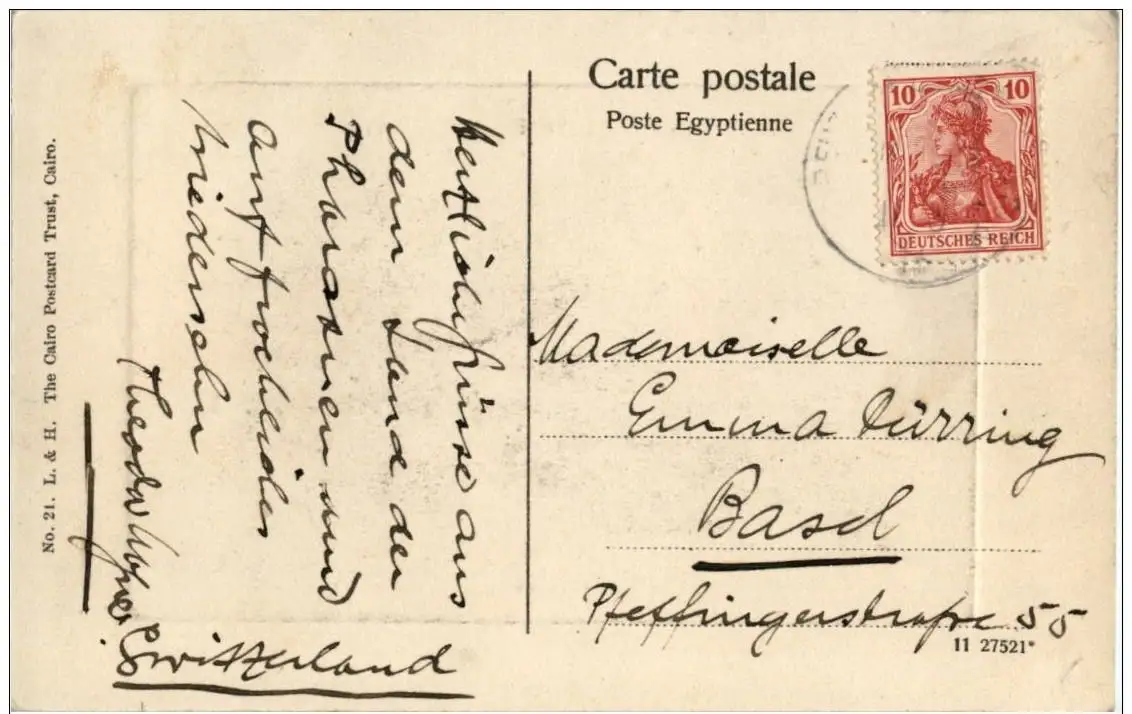 Carte postale
Poste Egyptienne
10 10
DEUTSCHES REICH
Herzliche Grüsse aus
dem Lande der
Pharaonen und
auf froehliches
Wiedersehn
Theodor
Mademoiselle
Emma Dürring
Basel
Pfeffingerstrasse 55
Switzerland
11 27521*
No. 21. L. & H. The Cairo Postcard Trust, Cairo.